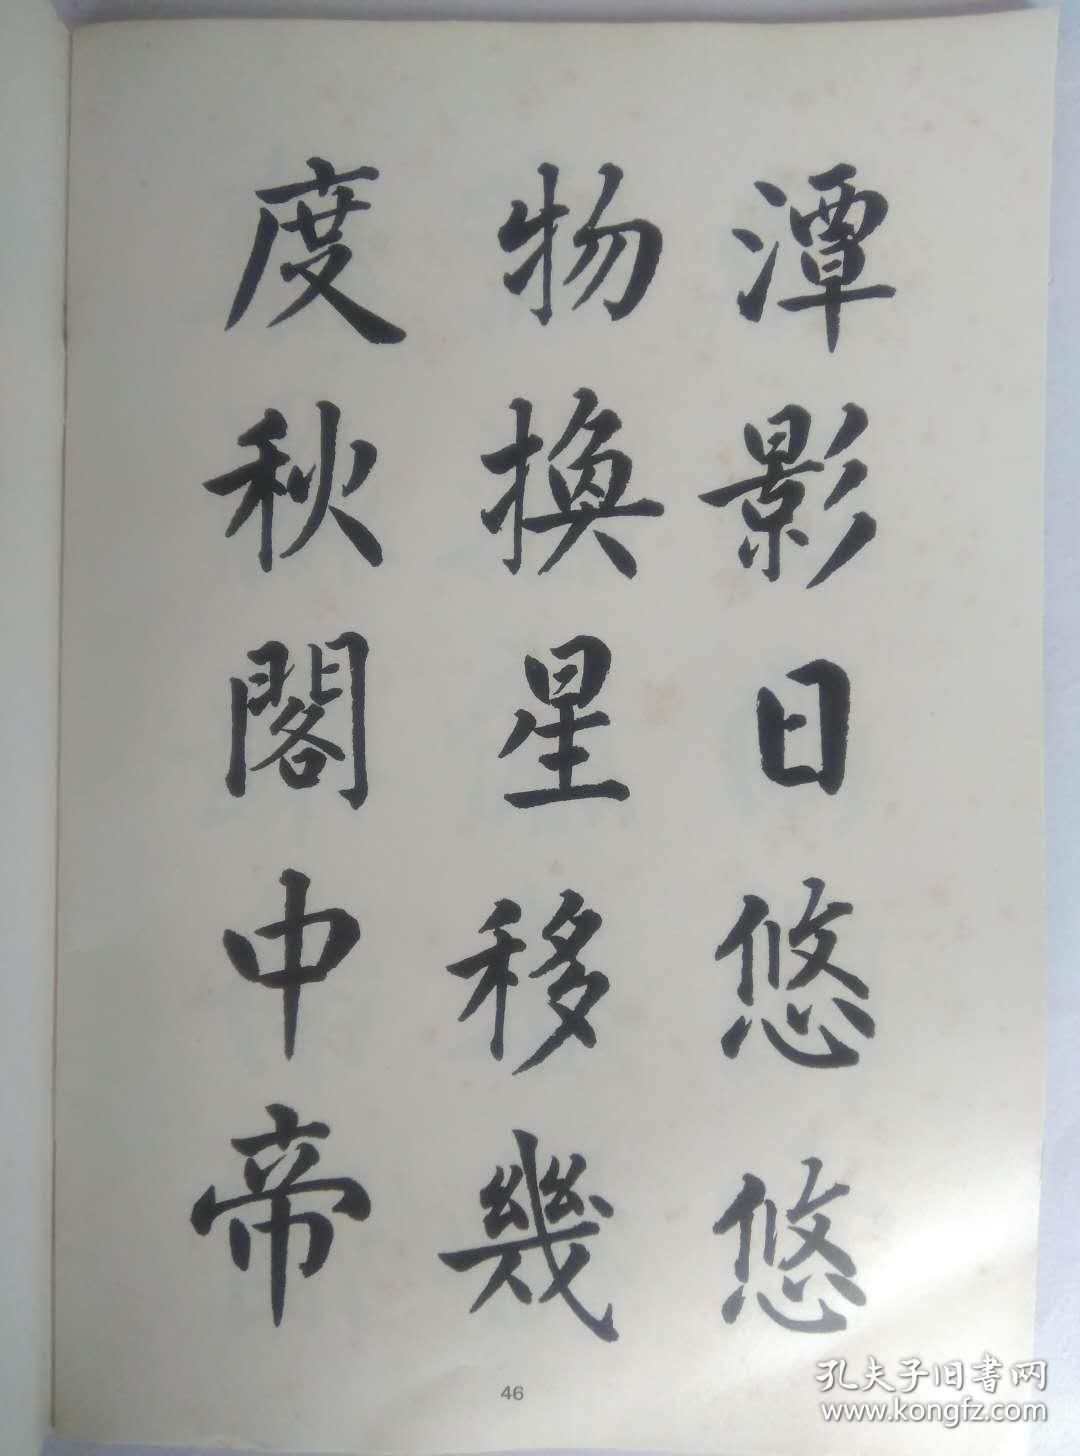 潭影日悠悠
物換星移幾
度秋閣中帝
46
孔夫子旧书网
www.kongfz.com